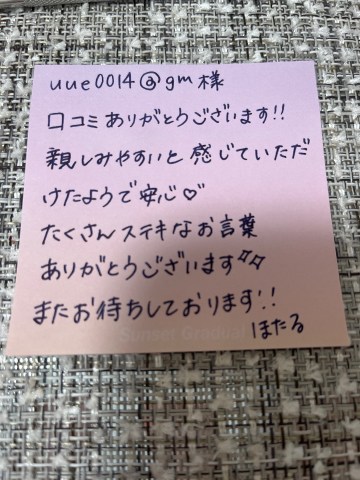 uue0014@gm様
口コミありがとうございます!!
親しみやすいと感じていただ
けたようで安心♡
たくさんステキなお言葉
ありがとうございます✨
またお待ちしております!!
Sunset Gradual
ほたる